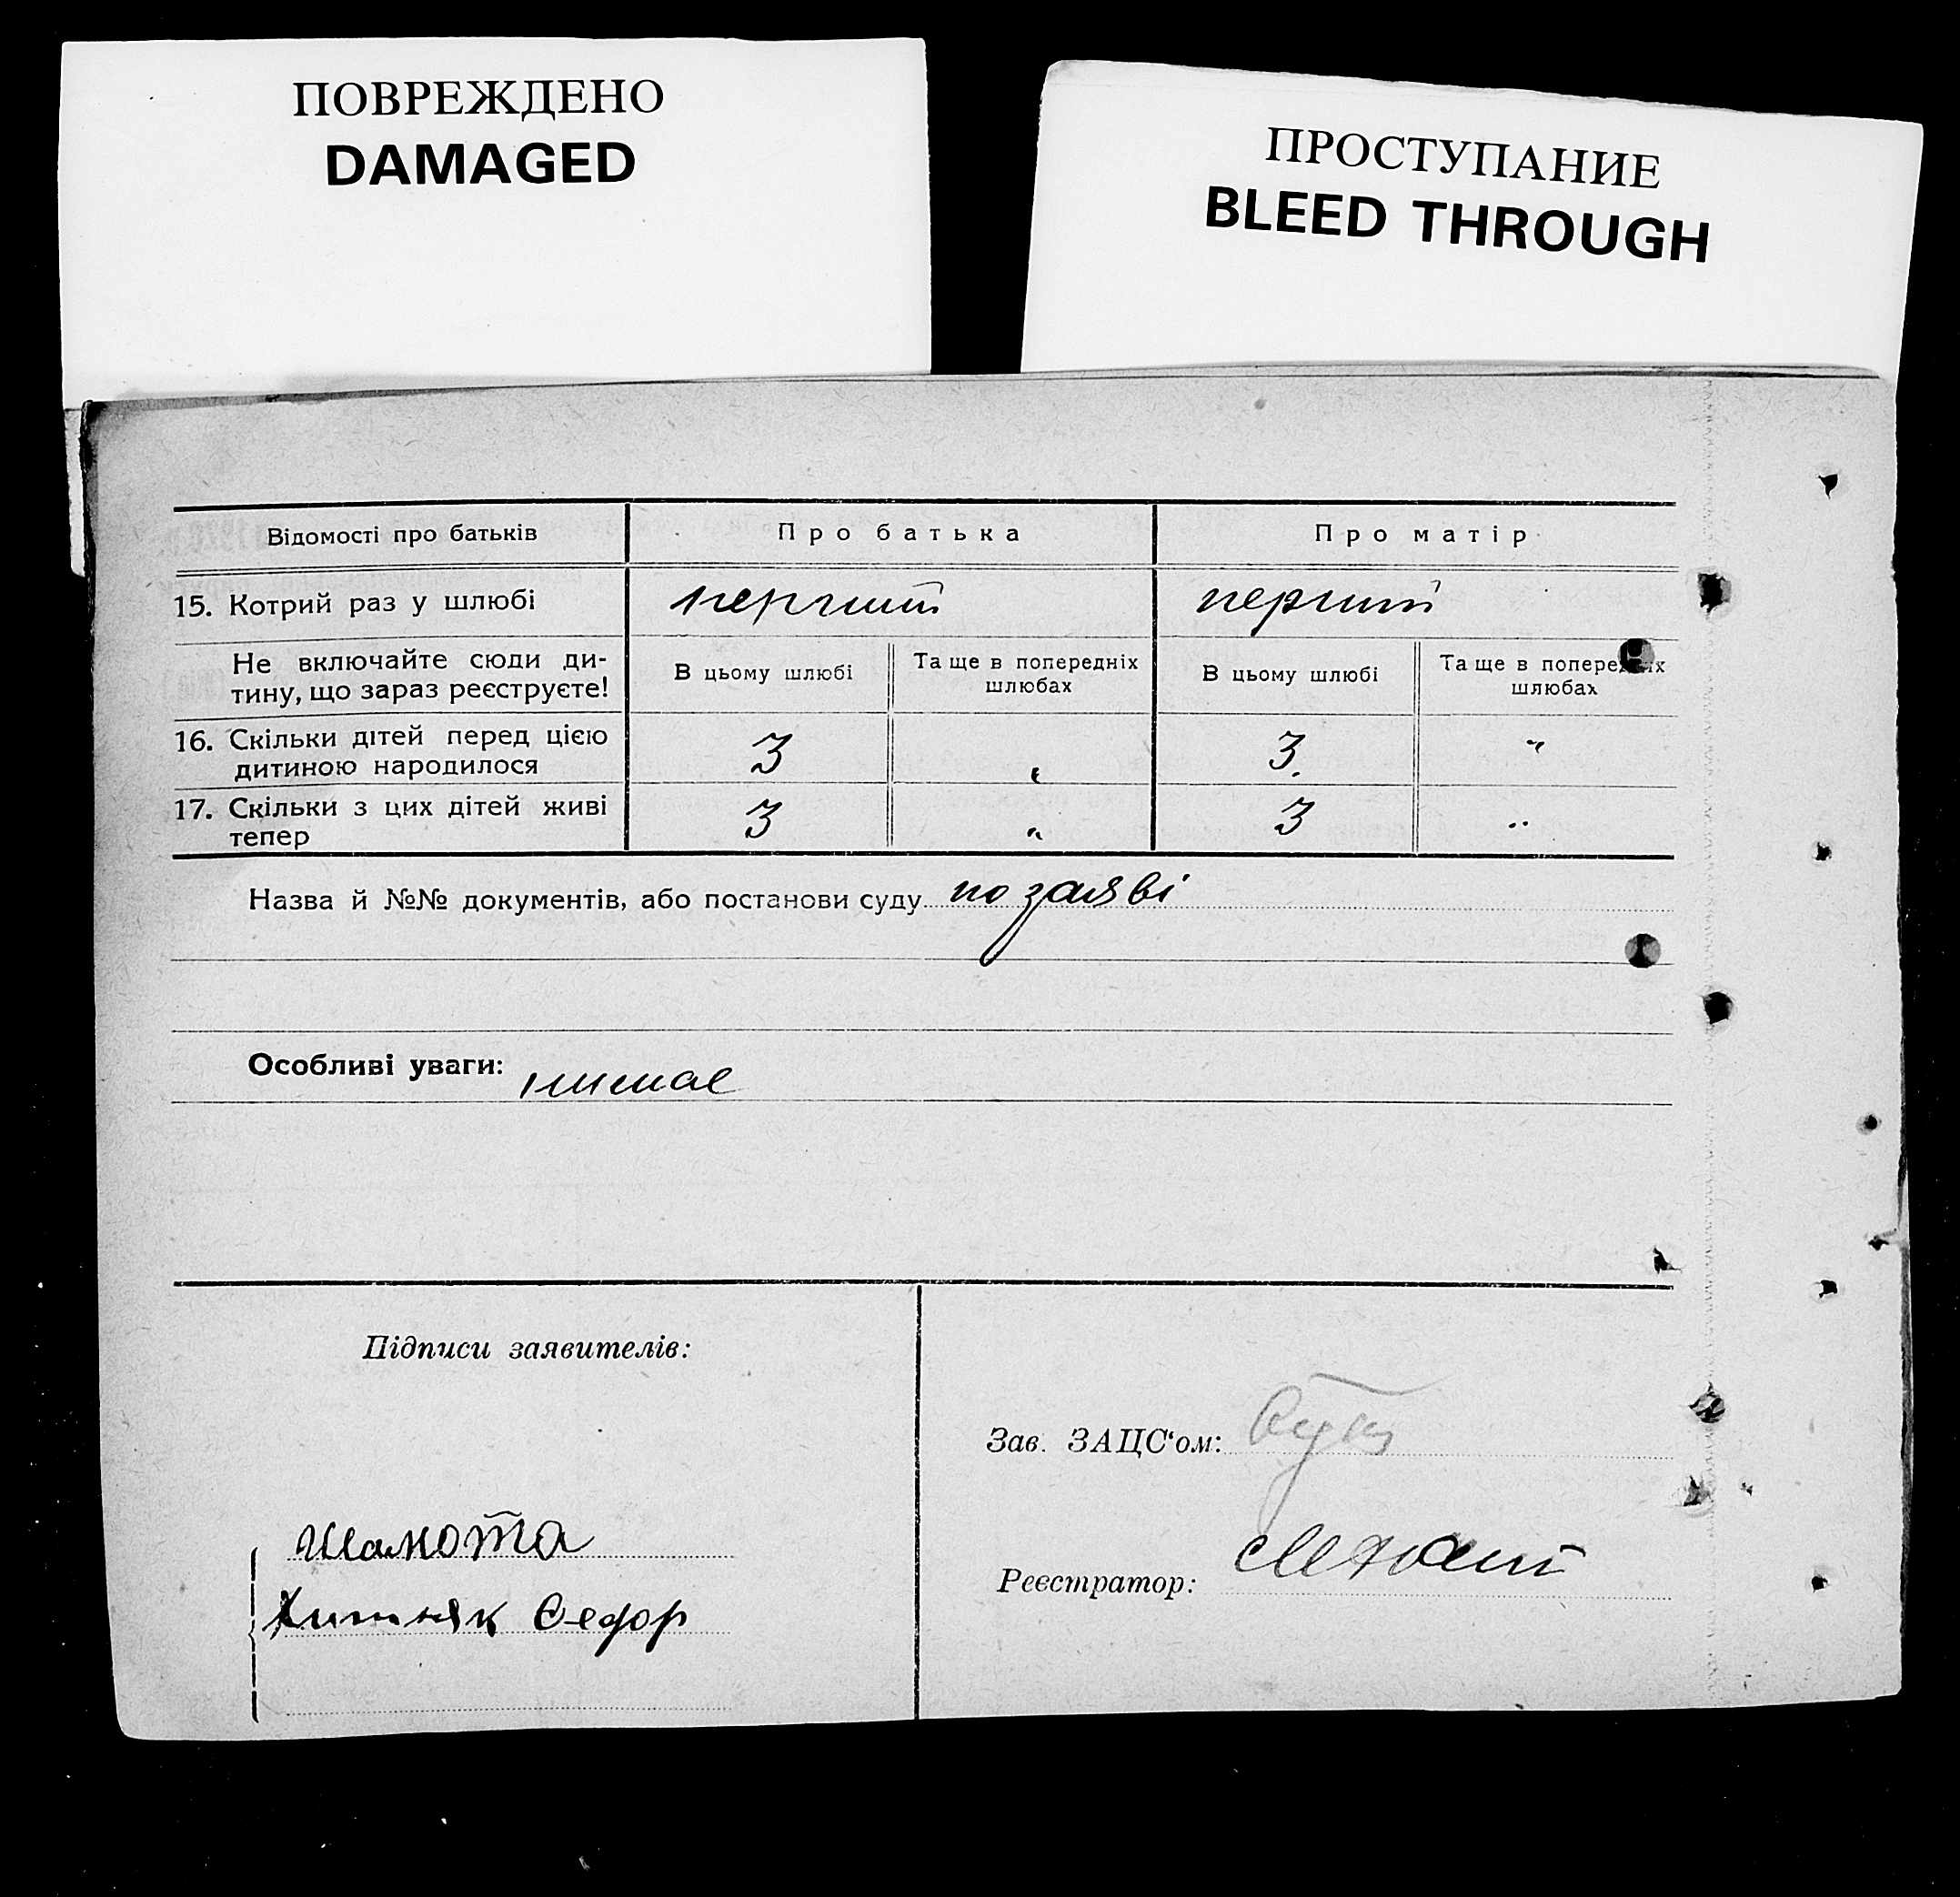 ПОВРЕЖДЕНО
DAMAGED
ПРОСТУПАНИЕ
BLEED THROUGH
Відомості про батьків
Про батька
Про матір
15. Котрий раз у шлюбі
перший
перший
Не включайте сюди ди-
тину, що зараз реєструєте!
В цьому шлюбі
Та ще в попередніх
шлюбах
В цьому шлюбі
Та ще в попередніх
шлюбах
16. Скільки дітей перед цією
дитиною народилося
3
3
"
17. Скільки з цих дітей живі
тепер
3
"
3
"
Назва й №№ документів, або постанови суду по заяві
Особливі уваги: немає
Підписи заявителів:
Зав. ЗАЦС‘ом:
Шамота
Реєстратор:
Федор